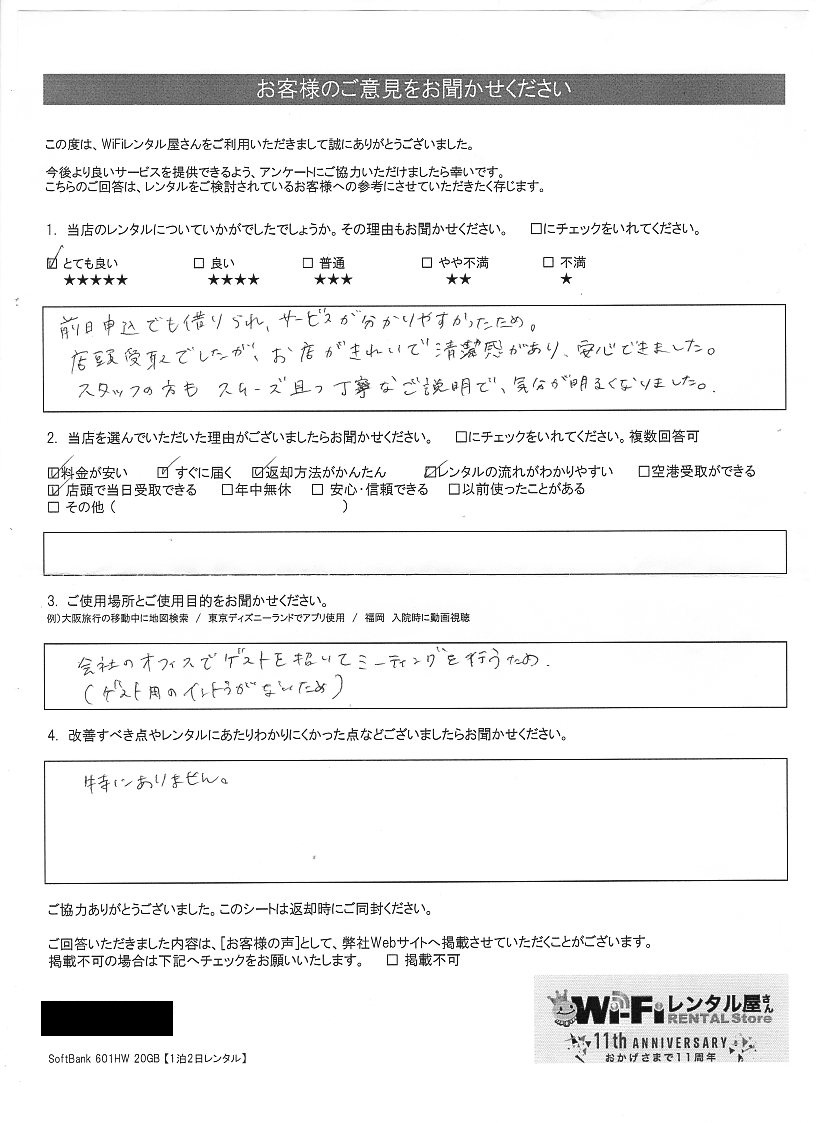 お客様のご意見をお聞かせください
この度は、WiFiレンタル屋さんをご利用いただきまして誠にありがとうございました。
今後より良いサービスを提供できるよう、アンケートにご協力いただけましたら幸いです。
こちらのご回答は、レンタルをご検討されているお客様への参考にさせていただきたく存じます。
1. 当店のレンタルについていかがでしたでしょうか。その理由もお聞かせください。 □にチェックをいれてください。
☑ とても良い □ 良い □ 普通 □ やや不満 □ 不満
★★★★★ ★★★★ ★★★ ★★ ★
前日申込でも借りられ、サービスが分かりやすかったため。
店頭受取でしたが、お店がきれいで清潔感があり、安心できました。
スタッフの方も スムーズ且つ丁寧なご説明で、気分が明るくなりました。
2. 当店を選んでいただいた理由がございましたらお聞かせください。 □にチェックをいれてください。複数回答可
☑料金が安い ☑ すぐに届く ☑返却方法がかんたん ☑レンタルの流れがわかりやすい □空港受取ができる
☑ 店頭で当日受取できる □年中無休 □ 安心・信頼できる □以前使ったことがある
□ その他 ( )
3. ご使用場所とご使用目的をお聞かせください。
例)大阪旅行の移動中に地図検索 / 東京ディズニーランドでアプリ使用 / 福岡 入院時に動画視聴
会社のオフィスでゲストを招いてミーティングを行うため.
(ゲスト用のイントラがないため)
4. 改善すべき点やレンタルにあたりわかりにくかった点などございましたらお聞かせください。
特にありません。
ご協力ありがとうございました。このシートは返却時にご同封ください。
ご回答いただきました内容は、[お客様の声]として、弊社Webサイトへ掲載させていただくことがございます。
掲載不可の場合は下記へチェックをお願いいたします。 □ 掲載不可
Wi-Fiレンタル屋さん
RENTAL Store
11th ANNIVERSARY
おかげさまで11周年
SoftBank 601HW 20GB【1泊2日レンタル】